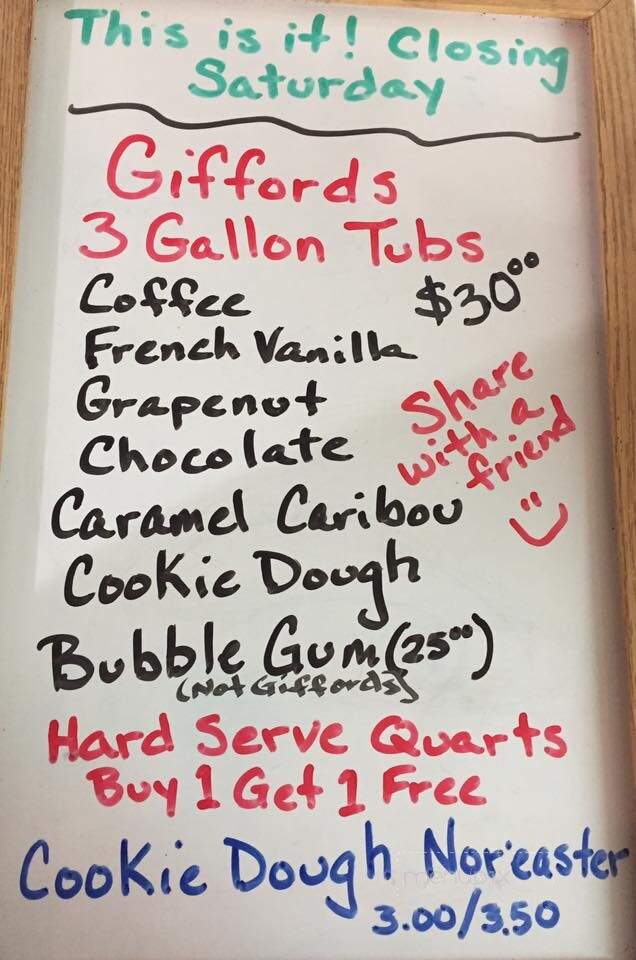 This is it! Closing
Saturday
Giffords
3 Gallon Tubs
$30⁰⁰
Coffee
French Vanilla
Grapenut
Chocolate
Share
with a
friend
Caramel Caribou
Cookie Dough
Bubble Gum (25⁰⁰)
(Not Giffords)
Hard Serve Quarts
Buy 1 Get 1 Free
Cookie Dough Nor'easter
3.00/3.50